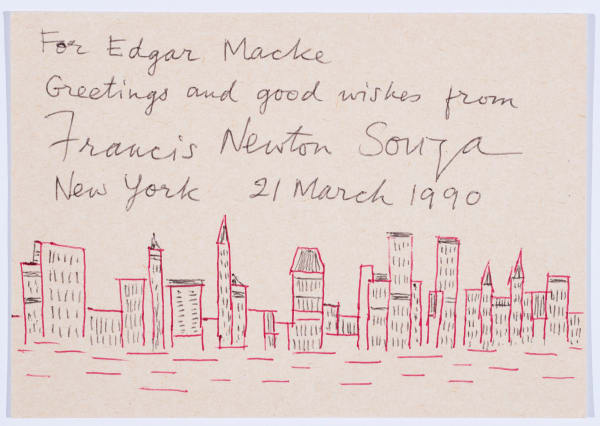 For Edgar Macke
Greetings and good wishes from
Francis Newton Souza
New York 21 March 1990